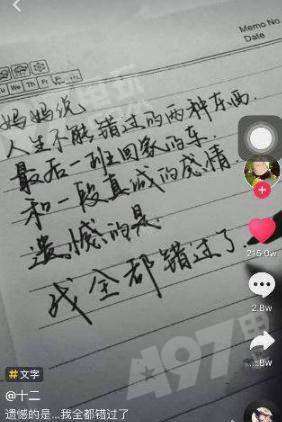 Memo No
Date
Mo Tu We Th Fr Sa Su
妈妈说
人生不能错过的两种东西
最后一班回家的车
和一段真诚的感情
遗憾的是
我全都错过了
215.0w
2.8w
#文字
@十二
遗憾的是...我全都错过了